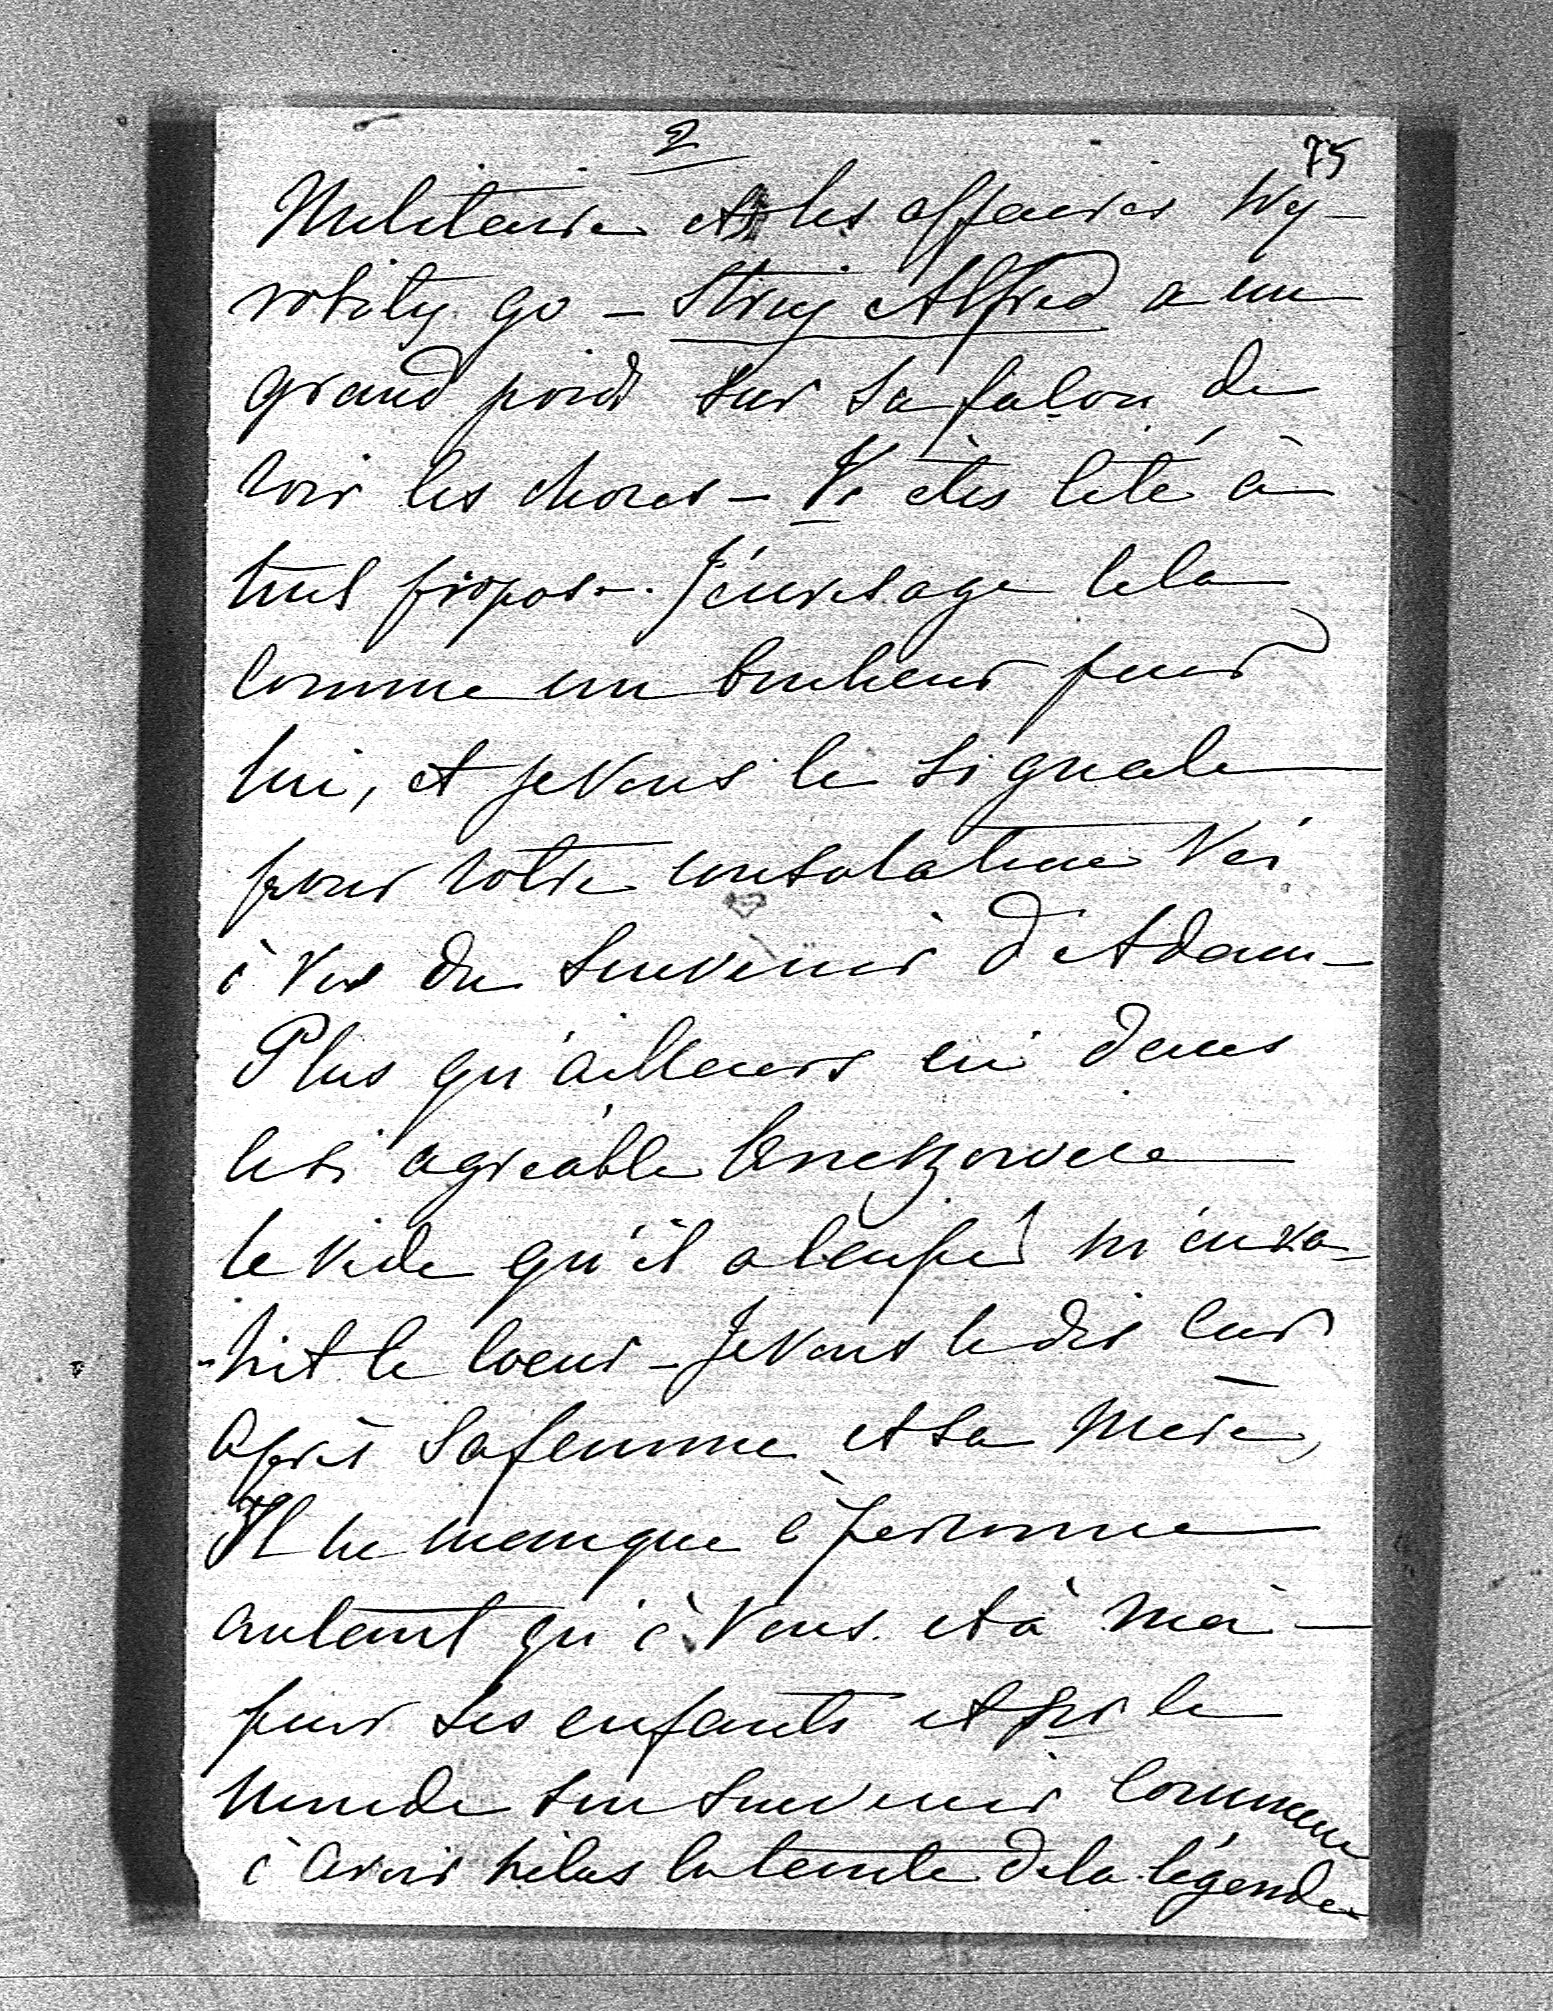 2
75
Militaire et les affaires Wy-
robily go - Stryj Alfred a un
grand poids sur sa façon de
voir les choses - Vs êtes cité à
tout propos. J'envisage cela
comme un bonheur pour
lui, et je vous le signale
pour votre consolation Vis
à Vis du souvenir d'Adam -
Plus qu'ailleurs ici dans
le si agréable Krzeszowice
le vide qu'il a laissé m'enva-
-hit le coeur - Je vous le dis car
après sa femme et sa Mère,
Il ne manque à personne
autant qu'à Vous et à Moi -
pour ses enfants et pr le
monde son souvenir commence
à avoir hélas la teinte de la légende